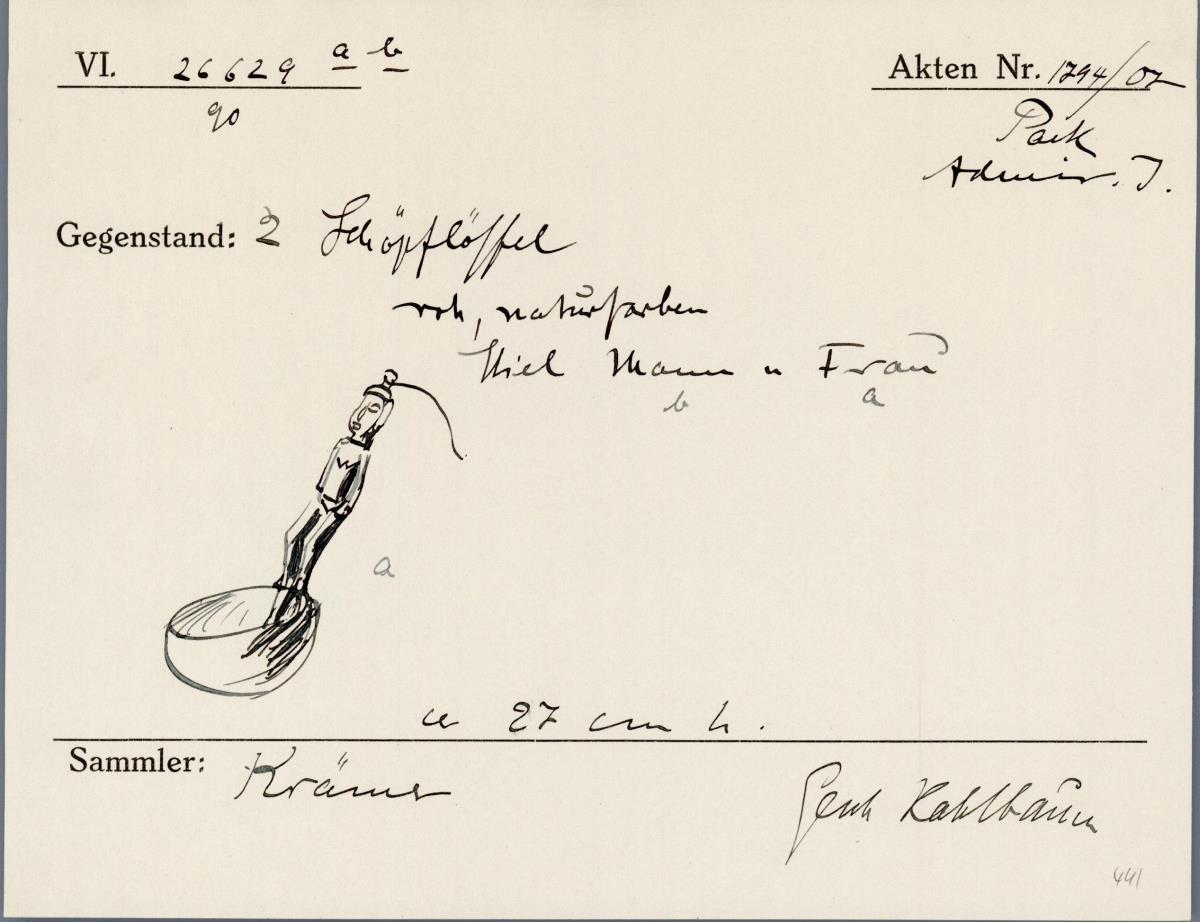 VI. 26629 a b
90
Akten Nr. 1794/07
Park
Admir. J.
Gegenstand: 2 Schöpflöffel
roh, naturfarben
Stiel Mann u Frau
b a
a
ca 27 cm h.
Sammler: Krämer
Gesch Kahlbaum
441